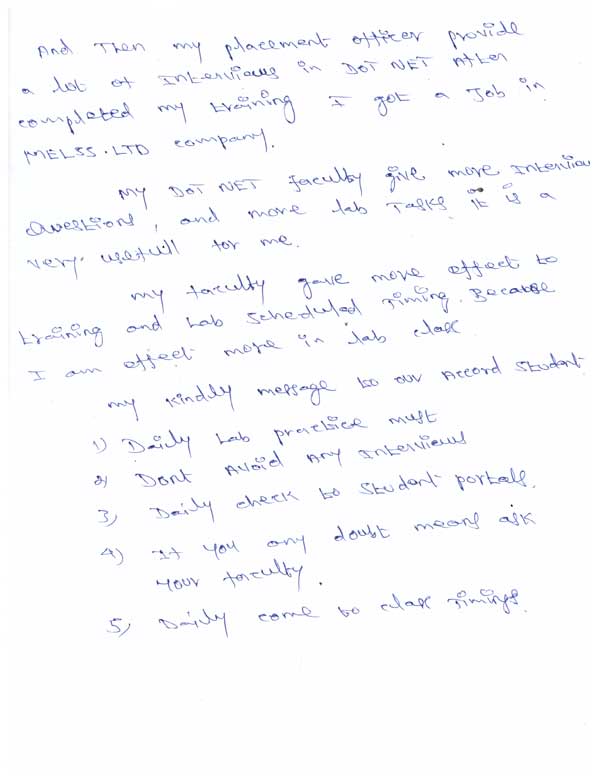 And Then my placement officer provide
a lot of Interviews in DOT NET After
completed my training I got a Job in
MELSS.LTD company.
My DOT NET faculty give more Interview
Questions, and more lab Tasks it is a
very usefull for me.
my faculty gave more effect to
training and Lab scheduled Timing. Because
I am effect more in lab class
my kindly message to our Accord student
1) Daily Lab practice must
2) Dont Avoid Any Interviews
3) Daily check to student portals.
4) If you any doubt means ask
your faculty.
5) Daily come to class Timings.